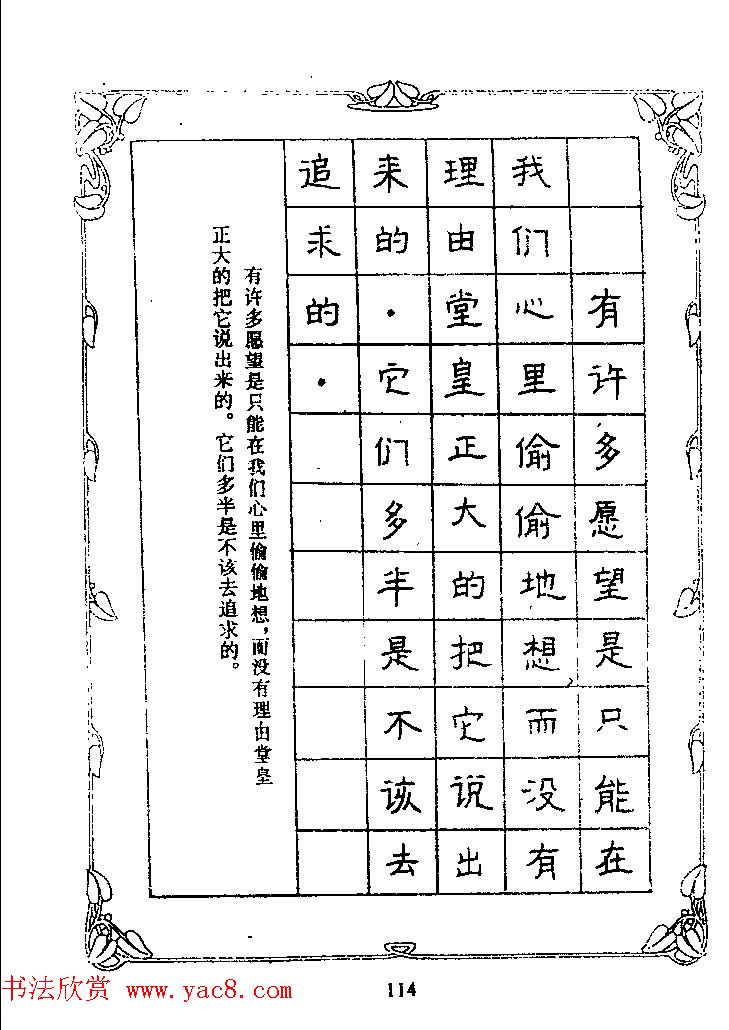 有许多愿望是只能在
我们心里偷偷地想,而没有
理由堂皇正大的把它说出
来的·它们多半是不该去
追求的·
有许多愿望是只能在我们心里偷偷地想,而没有理由堂皇
正大的把它说出来的。它们多半是不该去追求的。
书法欣赏 www.yac8.com
114